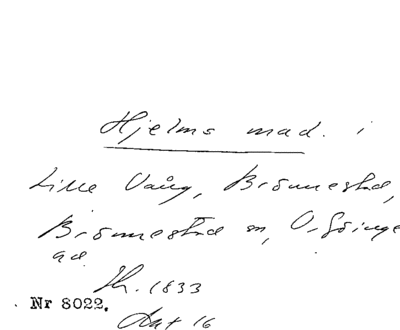 Hjelms mad. i
Lille Vång, Brönnestad,
Brönnestad sn, V. Göinge
hd.
Th. 1833
Nr 8022.
Akt 16